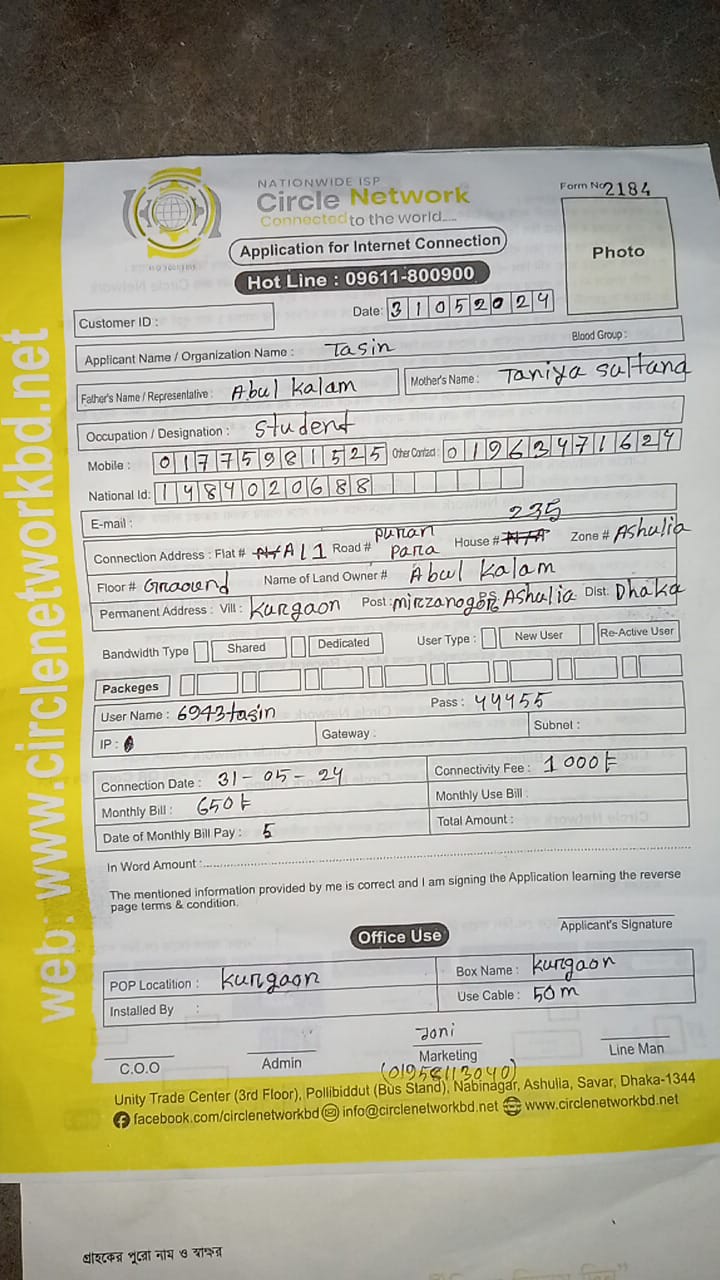 NATIONWIDE ISP
Circle Network
Connected to the world.....
Form No 2184
Application for Internet Connection
Photo
Hot Line : 09611-800900
Customer ID :
Date: 31052024
Blood Group :
Applicant Name / Organization Name : Tasin
Father's Name / Representative : Abul Kalam
Mother's Name : Taniya Sultana
Occupation / Designation : Student
Mobile : 01775981525 Other Contact : 01963471624
National Id: 1484020688
E-mail :
235
Connection Address : Flat # A11 Road # Puran Para House # N/A Zone # Ashulia
Floor # Graound Name of Land Owner # Abul Kalam
Permanent Address : Vill : Kurgaon Post : Ashulia Dist: Dhaka
Bandwidth Type Shared Dedicated User Type : New User Re-Active User
Packeges
User Name : 6943tasin Pass : 44455
IP : Gateway : Subnet :
Connection Date : 31-05-24 Connectivity Fee : 1000৳
Monthly Bill : 650৳ Monthly Use Bill :
Date of Monthly Bill Pay : 5 Total Amount :
In Word Amount :
The mentioned information provided by me is correct and I am signing the Application learning the reverse
page terms & condition.
Applicant's Signature
Office Use
POP Locatition : Kurgaon Box Name : Kurgaon
Installed By : Use Cable : 50m
Joni
C.O.O Admin Marketing Line Man
(01958113040)
Unity Trade Center (3rd Floor), Pollibiddut (Bus Stand), Nabinagar, Ashulia, Savar, Dhaka-1344
facebook.com/circlenetworkbd info@circlenetworkbd.net www.circlenetworkbd.net
web: www.circlenetworkbd.net
গ্রাহকের পুরো নাম ও স্বাক্ষর